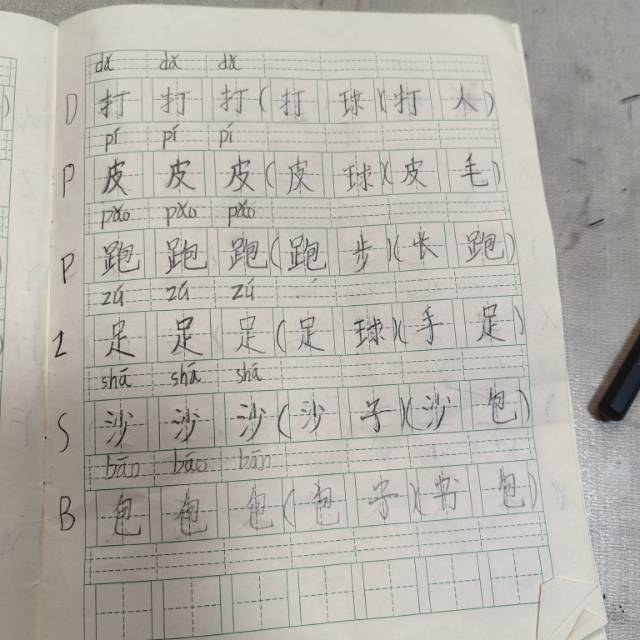 dǎ dǎ dǎ
D 打 打 打 ( 打 球 )( 打 人 )
pí pí pí
P 皮 皮 皮 ( 皮 球 )( 皮 毛 )
pǎo pǎo pǎo
P 跑 跑 跑 ( 跑 步 )( 长 跑 )
zú zú zú
Z 足 足 足 ( 足 球 )( 手 足 )
shā shā shā
S 沙 沙 沙 ( 沙 子 )( 沙 包 )
bāo bāo bāo
B 包 包 包 ( 包 子 )( 书 包 )